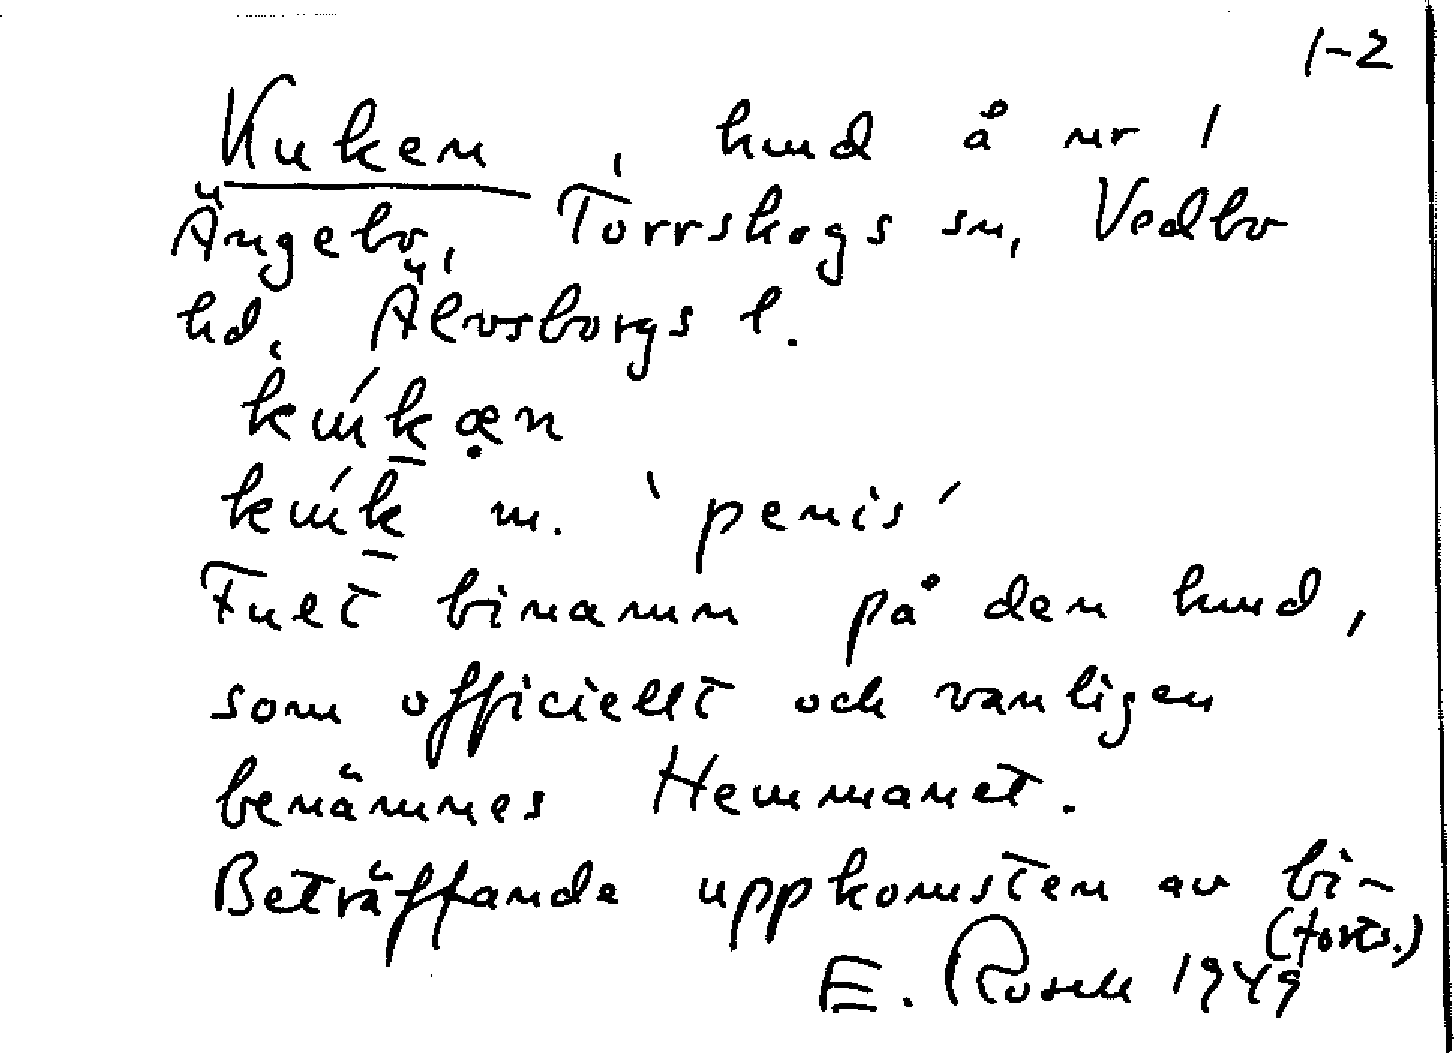 1-2
Kuken, hmd å nr 1
Ängebo, Torrskogs sn, Vedbo
hd, Älvsborgs l.
kúk̲æ̣n
kúk̲ m. 'penis'
Fult binamn på den hmd,
som officiellt och vanligen
benämnes Hemmanet.
Beträffande uppkomsten av bi-
(forts.)
E. Rosell 1949